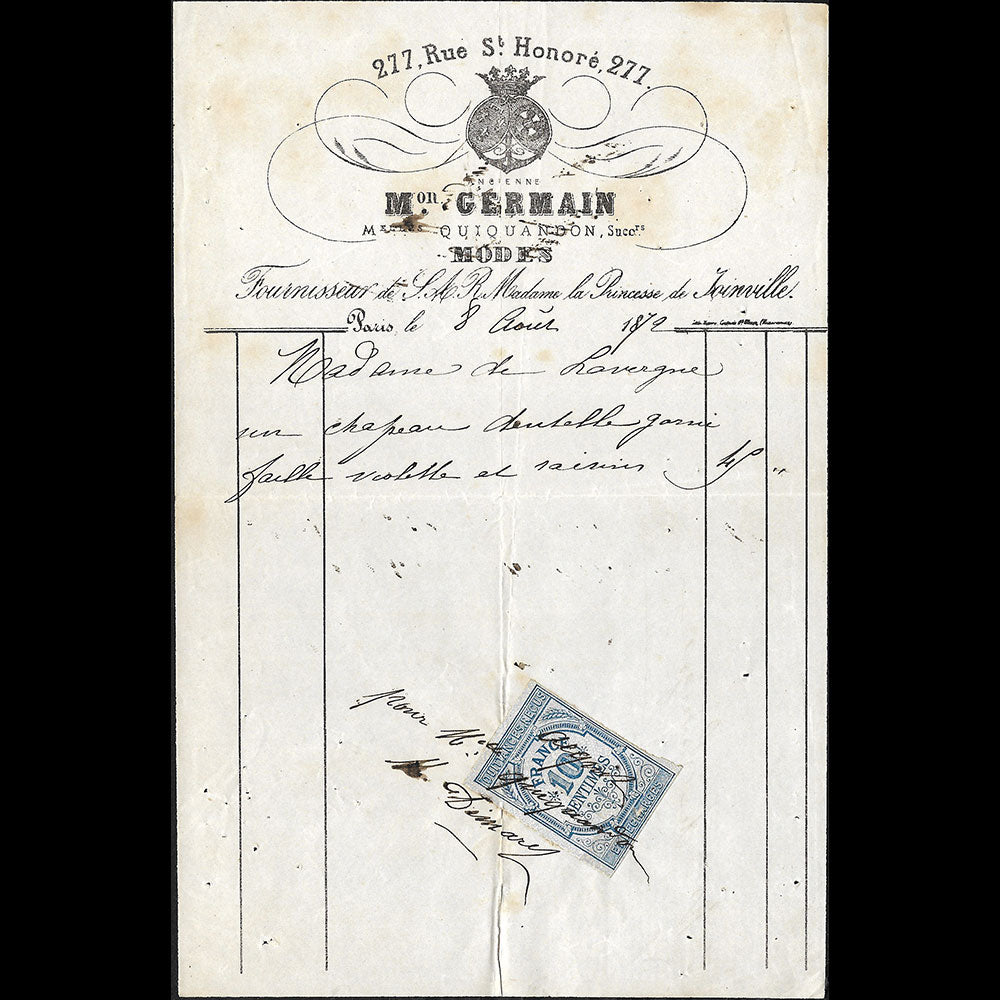 277, Rue St. Honoré, 277.
ANCIENNE
Mon. GERMAIN
QUIQUANDON, Succrs
MODES
Fournisseur de S.A.R. Madame la Princesse de Joinville.
Paris, le 8 Août 1872
Madame de Lavergne
un chapeau dentelle garni
faille violette et raisins 45 "
pour
Quiquandon
QUITTANCES REÇUS
FRANCE
10
CENTIMES
ET DÉCHARGES